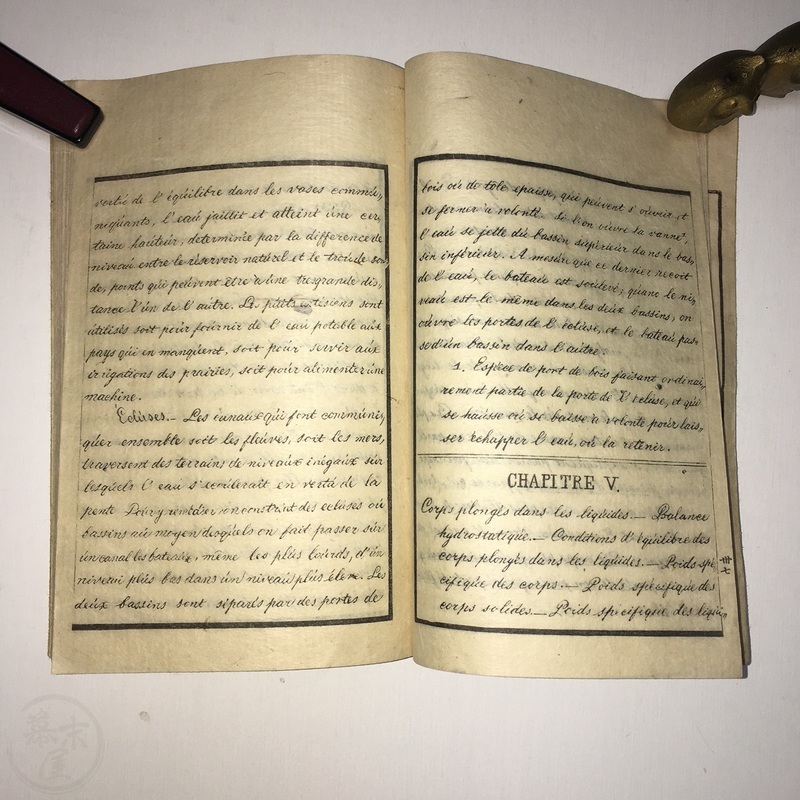 vertu de l'équilibre dans les vases commu,
niquants, l'eau jaillit et atteint une cer,
taine hauteur, determinée par la difference de
niveau entre le réservoir naturel et le trou de son
de, points qui peuvent être a une tres grande dis,
tance l'un de l'autre. Les puits artésiens sont
utilisés soit pour fournir de l'eau potable aux
pays qui en manquent, soit pour servir aux
irrigations des prairies, soit pour alimenter une
machine.
Écluses.— Les canaux qui font communi,
quer ensemble soit les fleuves, soit les mers,
traversent des terrains de niveaux inégaux sur
lesquels l'eau s'ecoulerait en vertu de la
pente. Pour y remédier on construit des ecluses ou
bassins au moyen desquels on fait passer sur
un canal les bateaux, même les plus lourds, d'un
niveau plus bas dans un niveau plus éleve. Les
deux bassins sont séparés par des portes de
bois ou de tôle epaisse, qui peuvent s'ouvrir et
se fermer à volonté. Si l'on ouvre la vanne¹,
l'eau se jette du bassin supérieur dans le bas,
sin inférieur. A mesure que ce dernier reçoit
de l'eau, le bateau est soulevé; quand le ni,
veau est le même dans les deux bassins, on
ouvre les portes de l'écluse, et le bateau pas,
se d'un bassin dans l'autre.
1. Espèce de port de bois faisant ordinai,
rement partie de la porte de l'écluse, et qui
se hausse ou se baisse à volonté pour lais,
ser echapper l'eau, ou la retenir.
CHAPITRE V.
Corps plongés dans les liquides.— Balance
hydrostatique.— Conditions d'équilibre des
corps plongés dans les liquides.— Poids spé
cifique des corps.— Poids spécifique des
corps solides.— Poids spécifique des liqui,
幕末屋